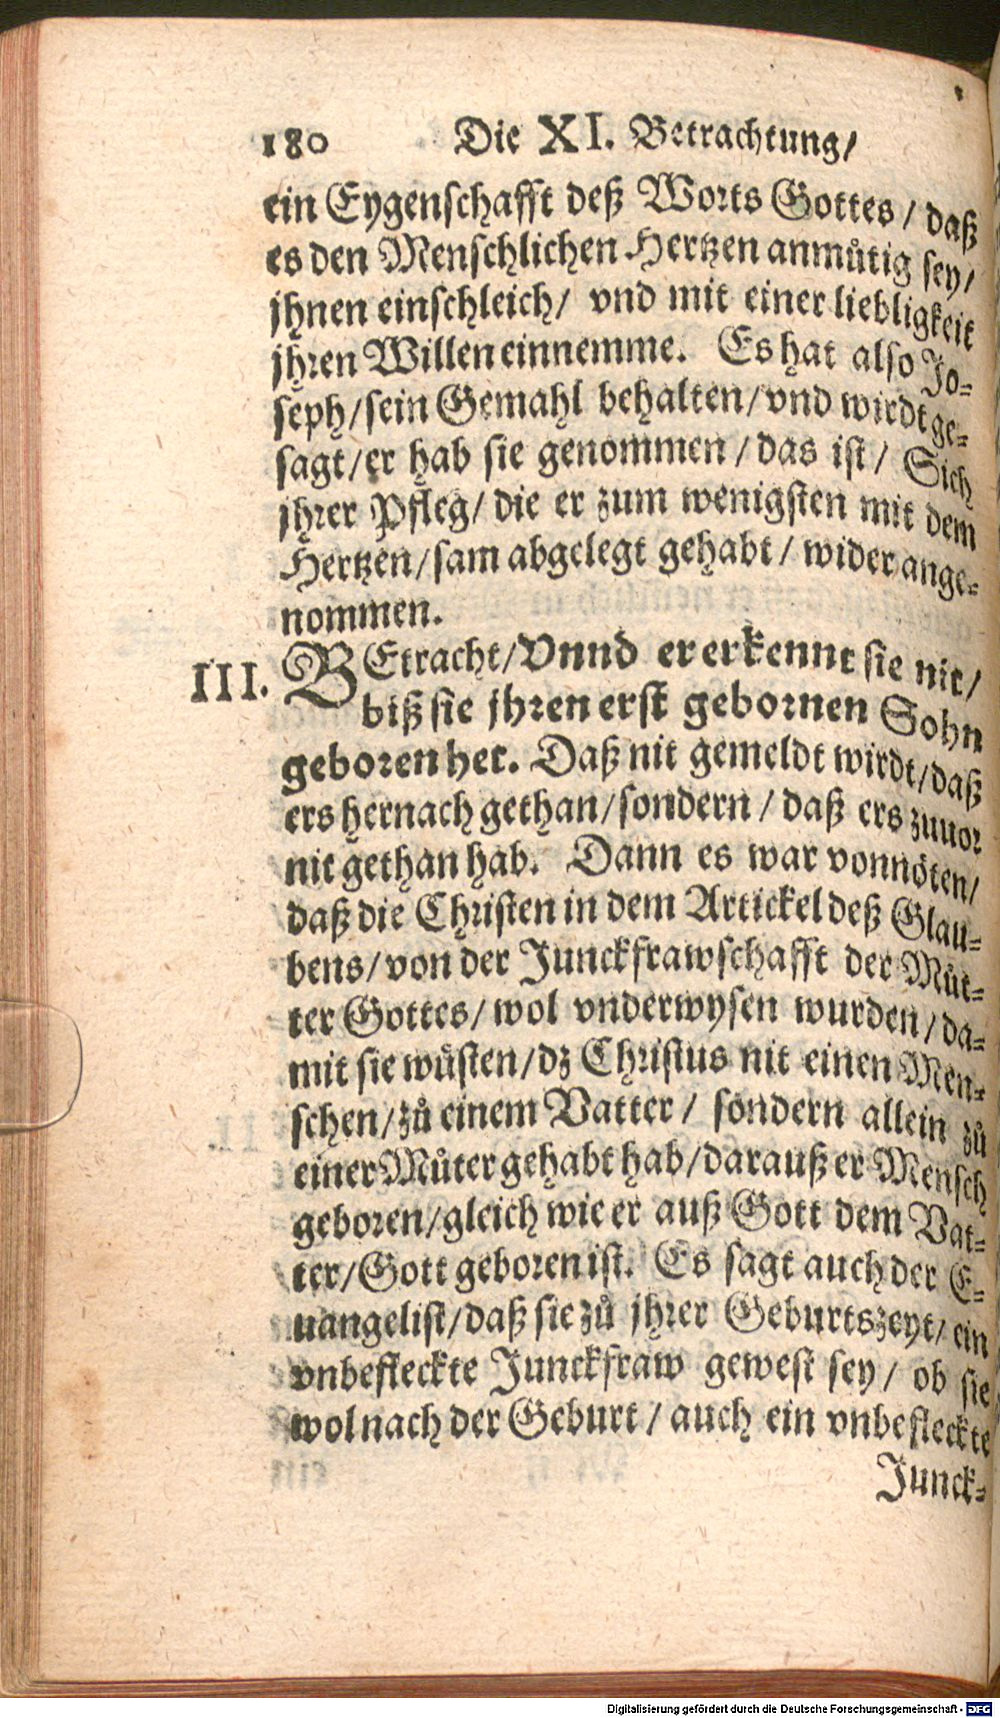 180 Die XI. Betrachtung/
ein Eygenschafft deß Worts Gottes / daß
es den Menschlichen Hertzen anmuͤtig sey/
jhnen einschleich/ vnd mit einer liebligkeit
jhren Willen einnemme. Es hat also Jo-
seph/sein Gemahl behalten/vnd wirdt ge-
sagt/er hab sie genommen /das ist/ Sich
jhrer Pfleg/ die er zum wenigsten mit dem
Hertzen/sam abgelegt gehabt / wider ange-
nommen.
III. BEtracht/Vnnd er erkennt sie nit/
biß sie jhren erst gebornen Sohn
geboren het. Daß nit gemeldt wirdt/daß
ers hernach gethan/sondern / daß ers zuuor
nit gethan hab. Dann es war vonnöten/
daß die Christen in dem Artickel deß Glau-
bens/von der Junckfrawschafft der Muͤt-
ter Gottes/ wol vnderwysen wurden/da-
mit sie wuͤsten/dz Christus nit einen Men-
schen/zů einem Vatter / sondern allein zů
einer Můter gehabt hab/darauß er Mensch
geboren/gleich wie er auß Gott dem Vat-
ter/Gott geboren ist. Es sagt auch der E-
uangelist/daß sie zů jhrer Geburtszeyt/ein
vnbefleckte Junckfraw gewest sey / ob sie
wol nach der Geburt / auch ein vnbefleckte
Junck-
Digitalisierung gefördert durch die Deutsche Forschungsgemeinschaft - DFG